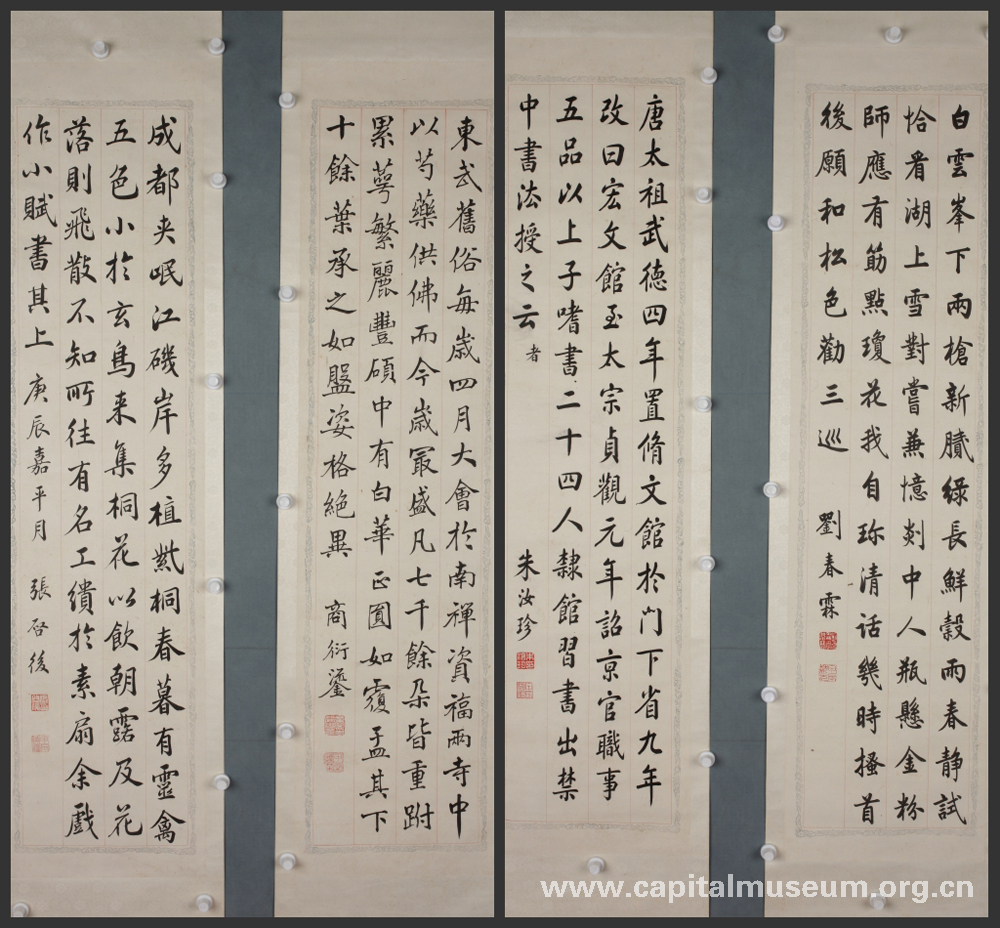 白雲峯下兩槍新膩綠長鮮穀雨春靜試
恰看湖上雪對嘗兼憶剡中人瓶懸金粉
師應有筯點瓊花我自珎清話幾時搔首
後願和松色勸三巡
劉春霖
唐太祖武德四年置脩文館於门下省九年
改曰宏文館至太宗貞觀元年詔京官職事
五品以上子嗜書二十四人隸館習書出禁
中書法授之云
者
朱汝珍
東武舊俗每歲四月大會於南禪資福兩寺中
以芍藥供佛而今歲冣盛凡七千餘朵皆重跗
累萼繁麗豐碩中有白華正圓如覆盂其下
十餘葉承之如盤姿格絕異
商衍鎏
成都夾岷江磯岸多植紫桐春暮有靈禽
五色小於玄鳥来集桐花以飲朝露及花
落則飛散不知所往有名工繢於素扇余戲
作小賦書其上
庚辰嘉平月
張啓後
www.capitalmuseum.org.cn